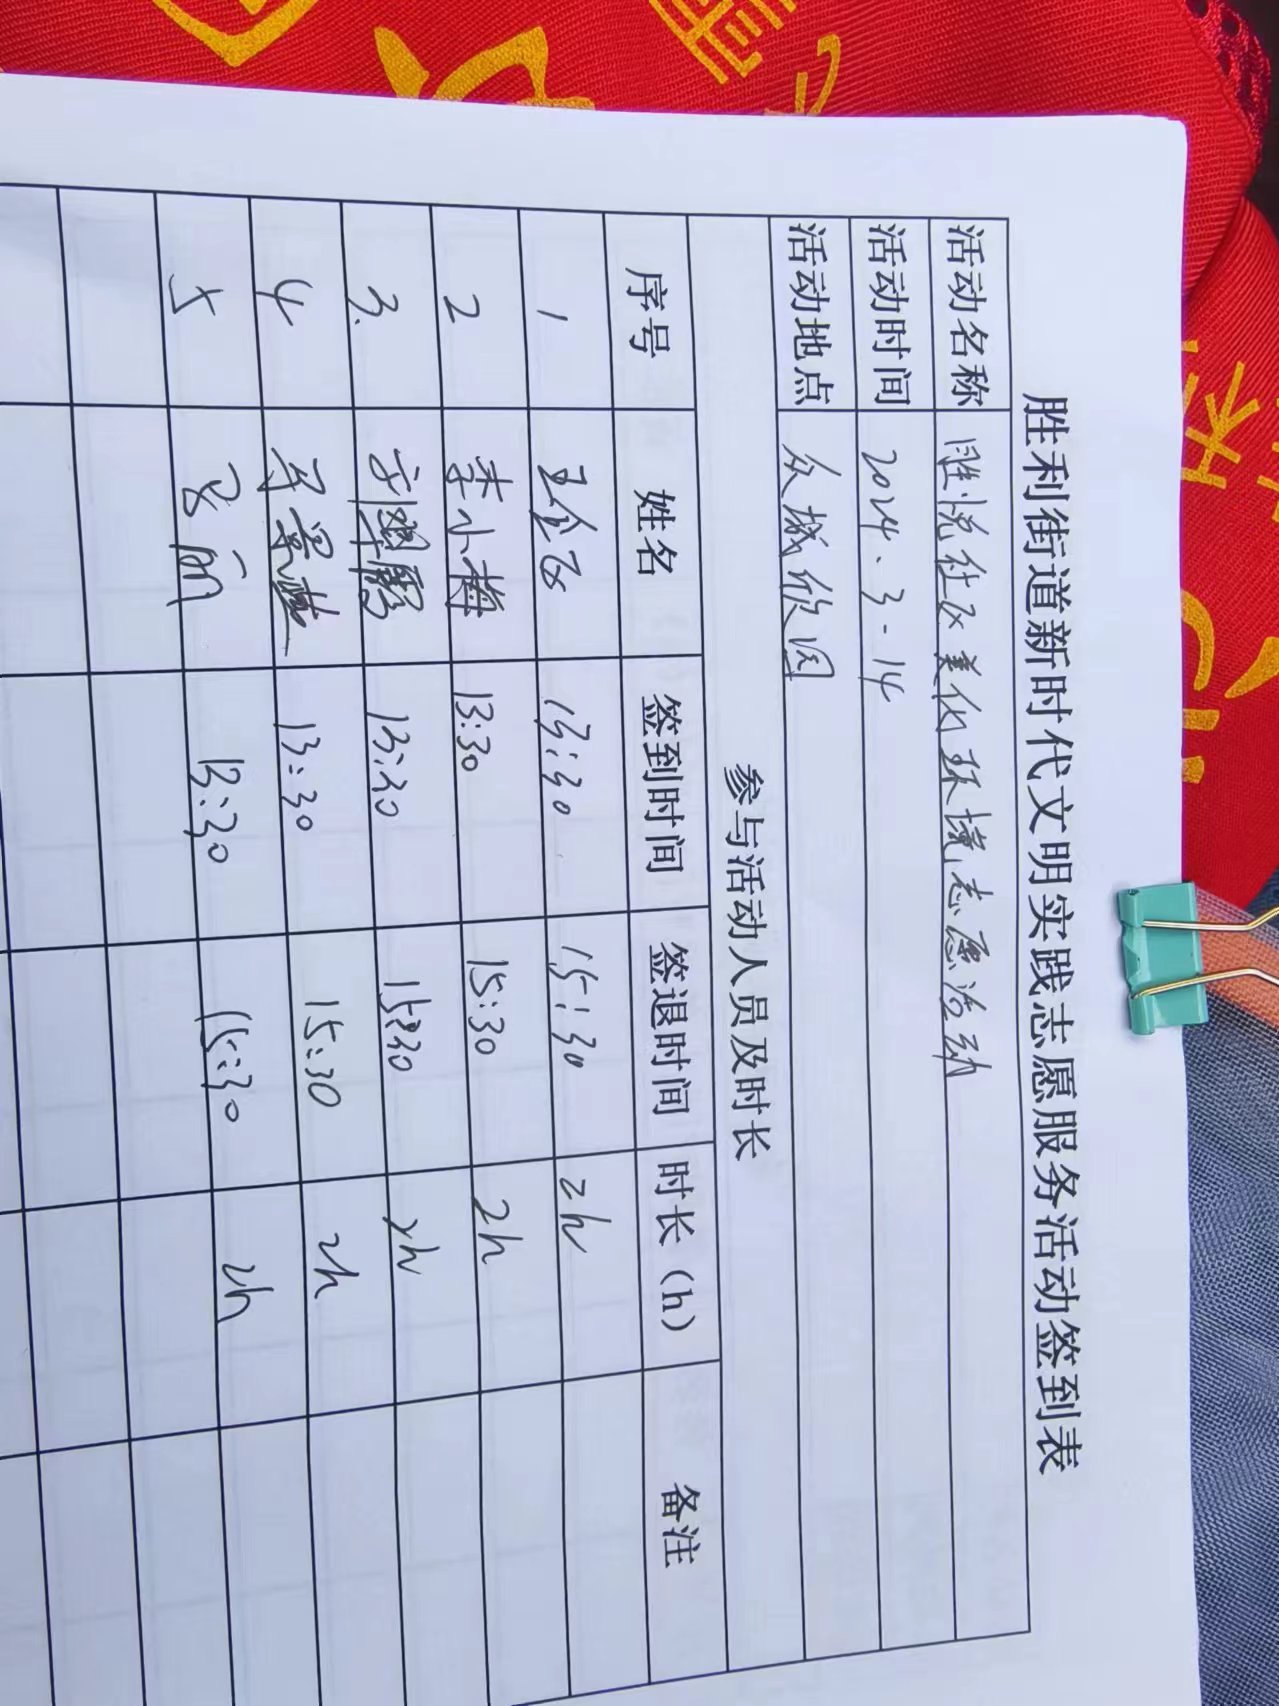 胜利街道新时代文明实践志愿服务活动签到表
活动名称 胜悦社区美化环境志愿活动
活动时间 2024.3-14
活动地点 众城欣园
参与活动人员及时长
序号 姓名 签到时间 签退时间 时长（h） 备注
1 13:30 15:30 2h
2 李小梅 13:30 15:30 2h
3. 13:30 15:30 2h
4 13:30 15:30 2h
5 13:30 15:30 2h